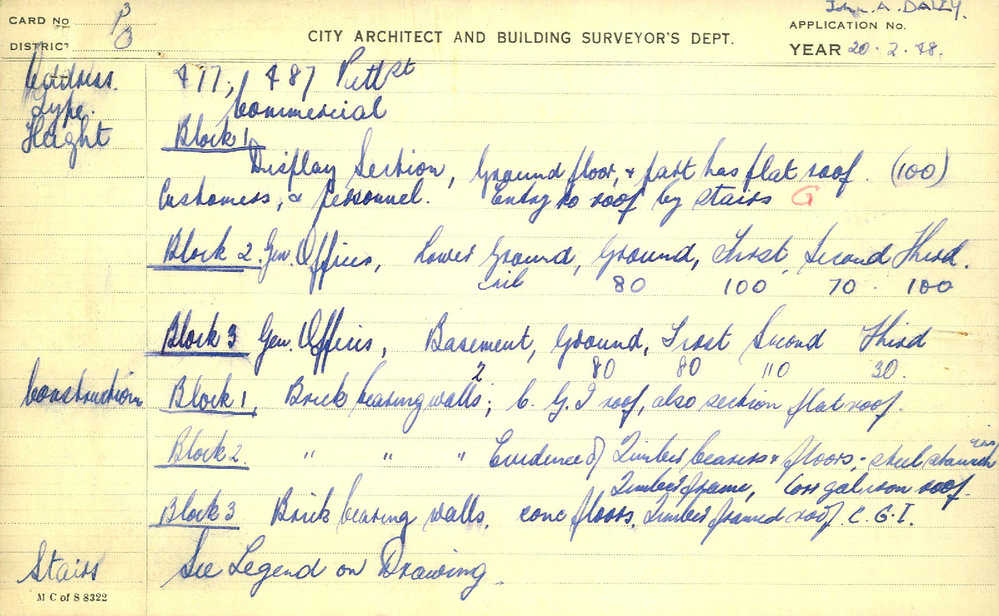 CARD No B
John. A. DALEY.
APPLICATION No.
DISTRICT
CITY ARCHITECT AND BUILDING SURVEYOR'S DEPT.
YEAR 20.2.48.
Address. 477, 487 Pitt St
Type. Commercial
Height Block 1
Display Section, Ground floor, & part has flat roof. (100)
Customers, & personnel. Entry to roof by stairs G
Block 2. Gen. Offices, Lower Ground, Ground, First, Second Third.
80 100 70. 100
Block 3 Gen. Offices, Basement, Ground, First Second Third
80 80 110 30.
Construction Block 1, Brick bearing walls; C. G. I roof, also section flat roof.
Block 2. " " " Evidence of Timber bearers & floors; steel
Timber frame, Corr gal iron roof.
Block 3 Brick bearing walls, conc floors, Timber framed roof C.G.I.
Stairs See Legend on Drawing.
M C of S 8322